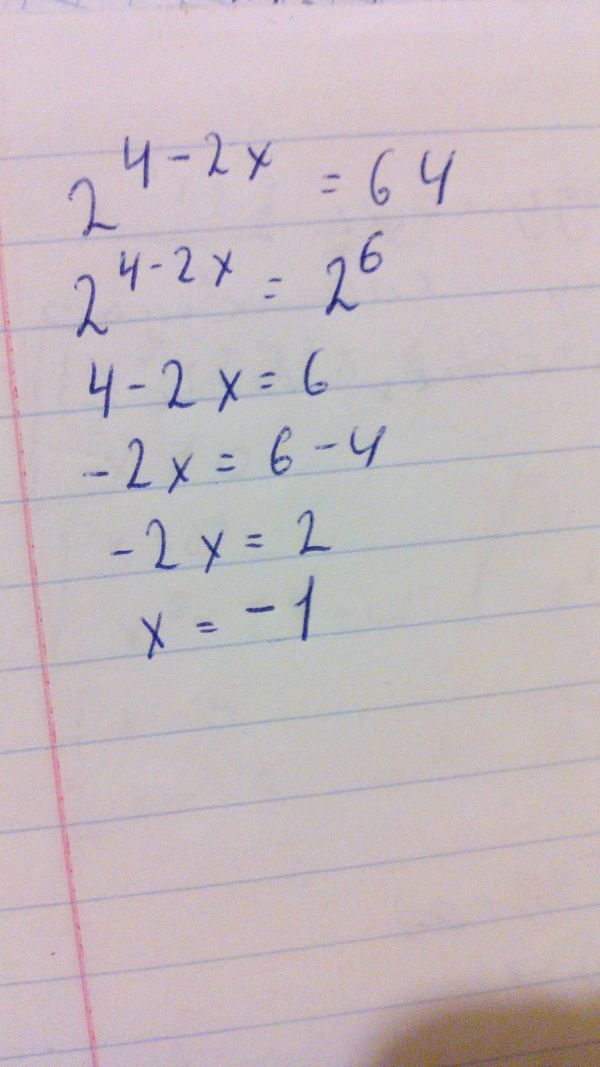 2^{4-2x} = 64
2^{4-2x} = 2^6
4-2x=6
-2x=6-4
-2x=2
x=-1